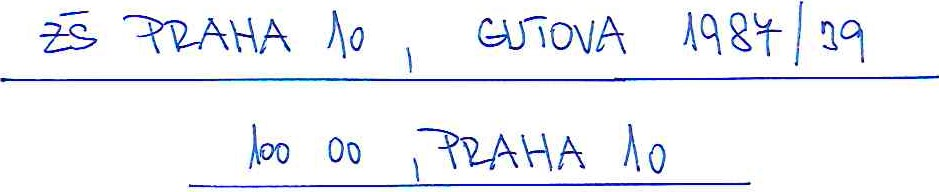 ZŠ PRAHA 10, GUTOVA 1987/39
100 00, PRAHA 10